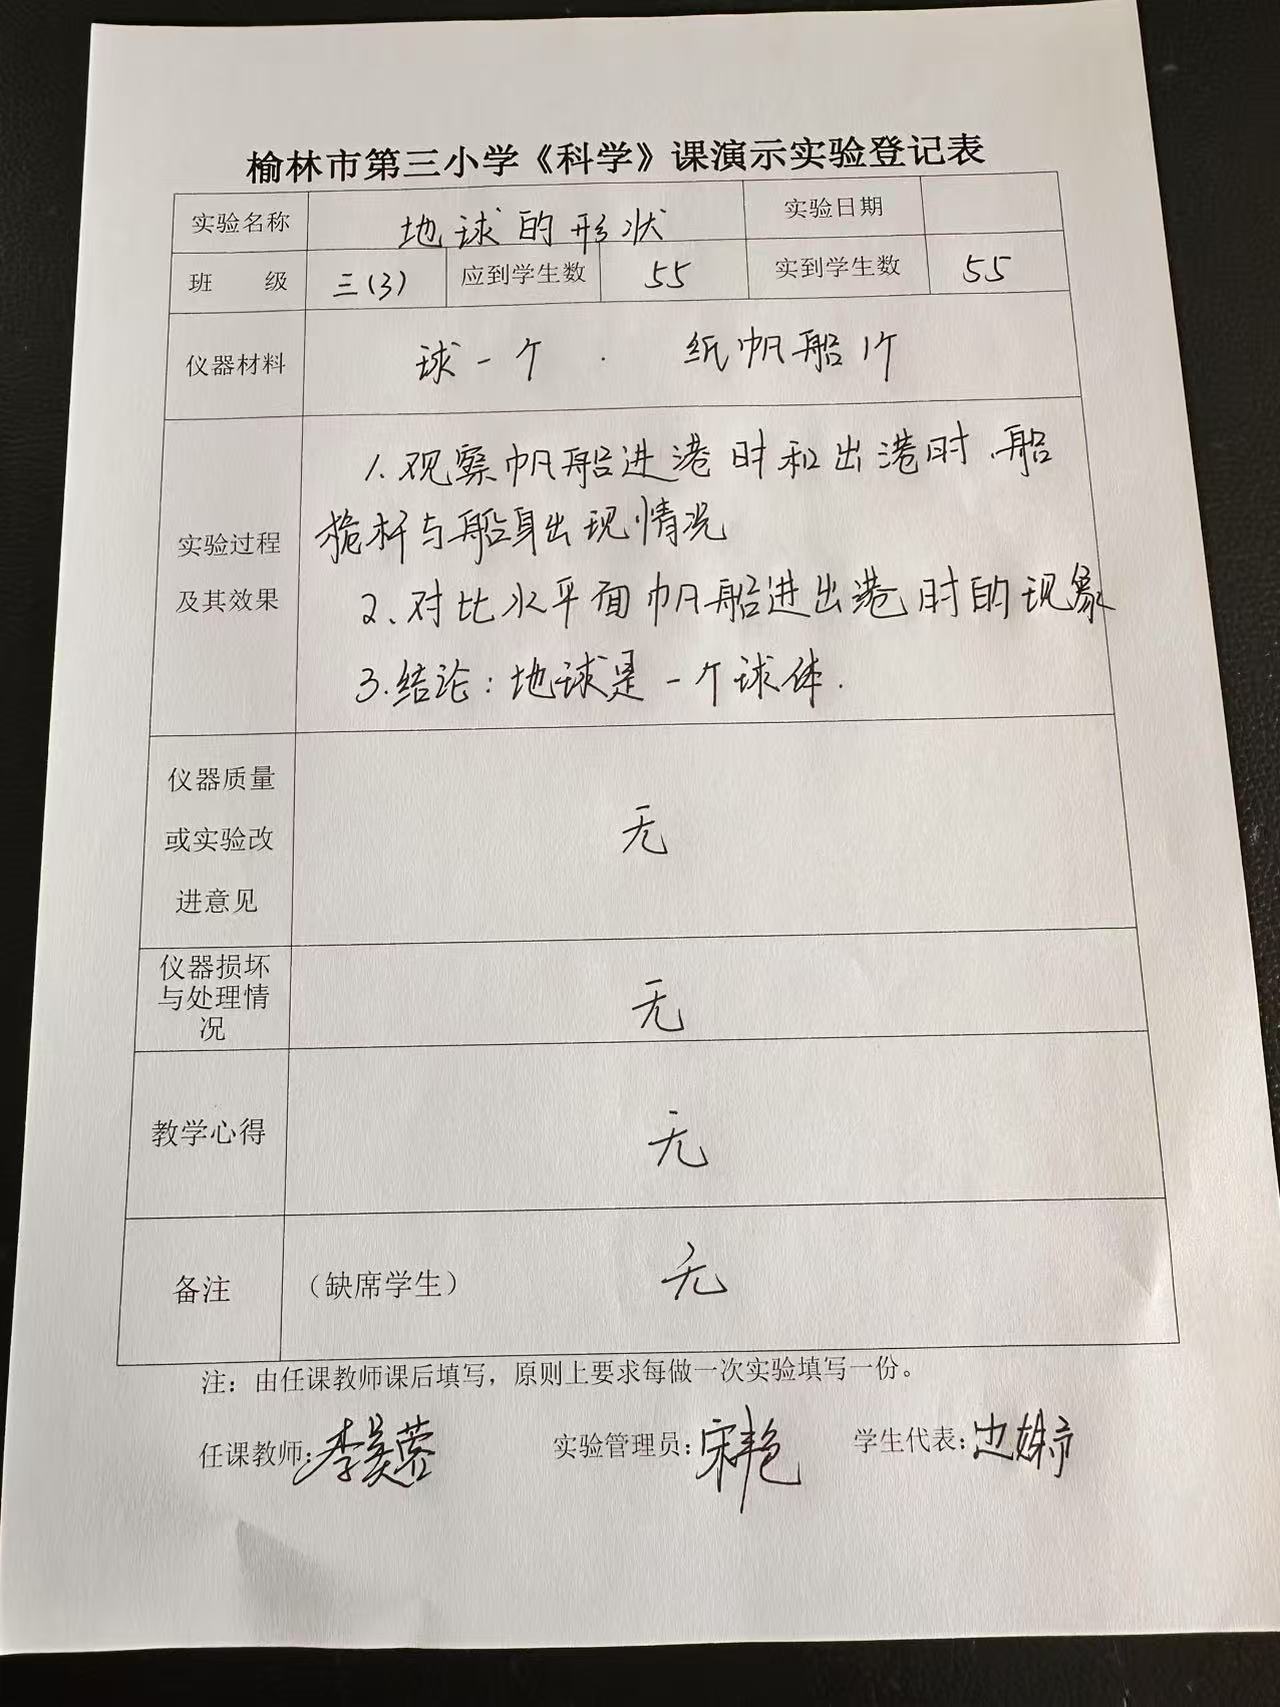 榆林市第三小学《科学》课演示实验登记表
实验名称 地球的形状 实验日期
班 级 三(3) 应到学生数 55 实到学生数 55
仪器材料 球一个 . 纸帆船1个
实验过程
及其效果
1.观察帆船进港时和出港时.船
桅杆与船身出现情况
2、对比水平面帆船进出港时的现象
3.结论:地球是一个球体.
仪器质量
或实验改
进意见
无
仪器损坏
与处理情
况
无
教学心得 无
备注 (缺席学生) 无
注:由任课教师课后填写,原则上要求每做一次实验填写一份。
任课教师:李美蓉 实验管理员:宋艳 学生代表:边